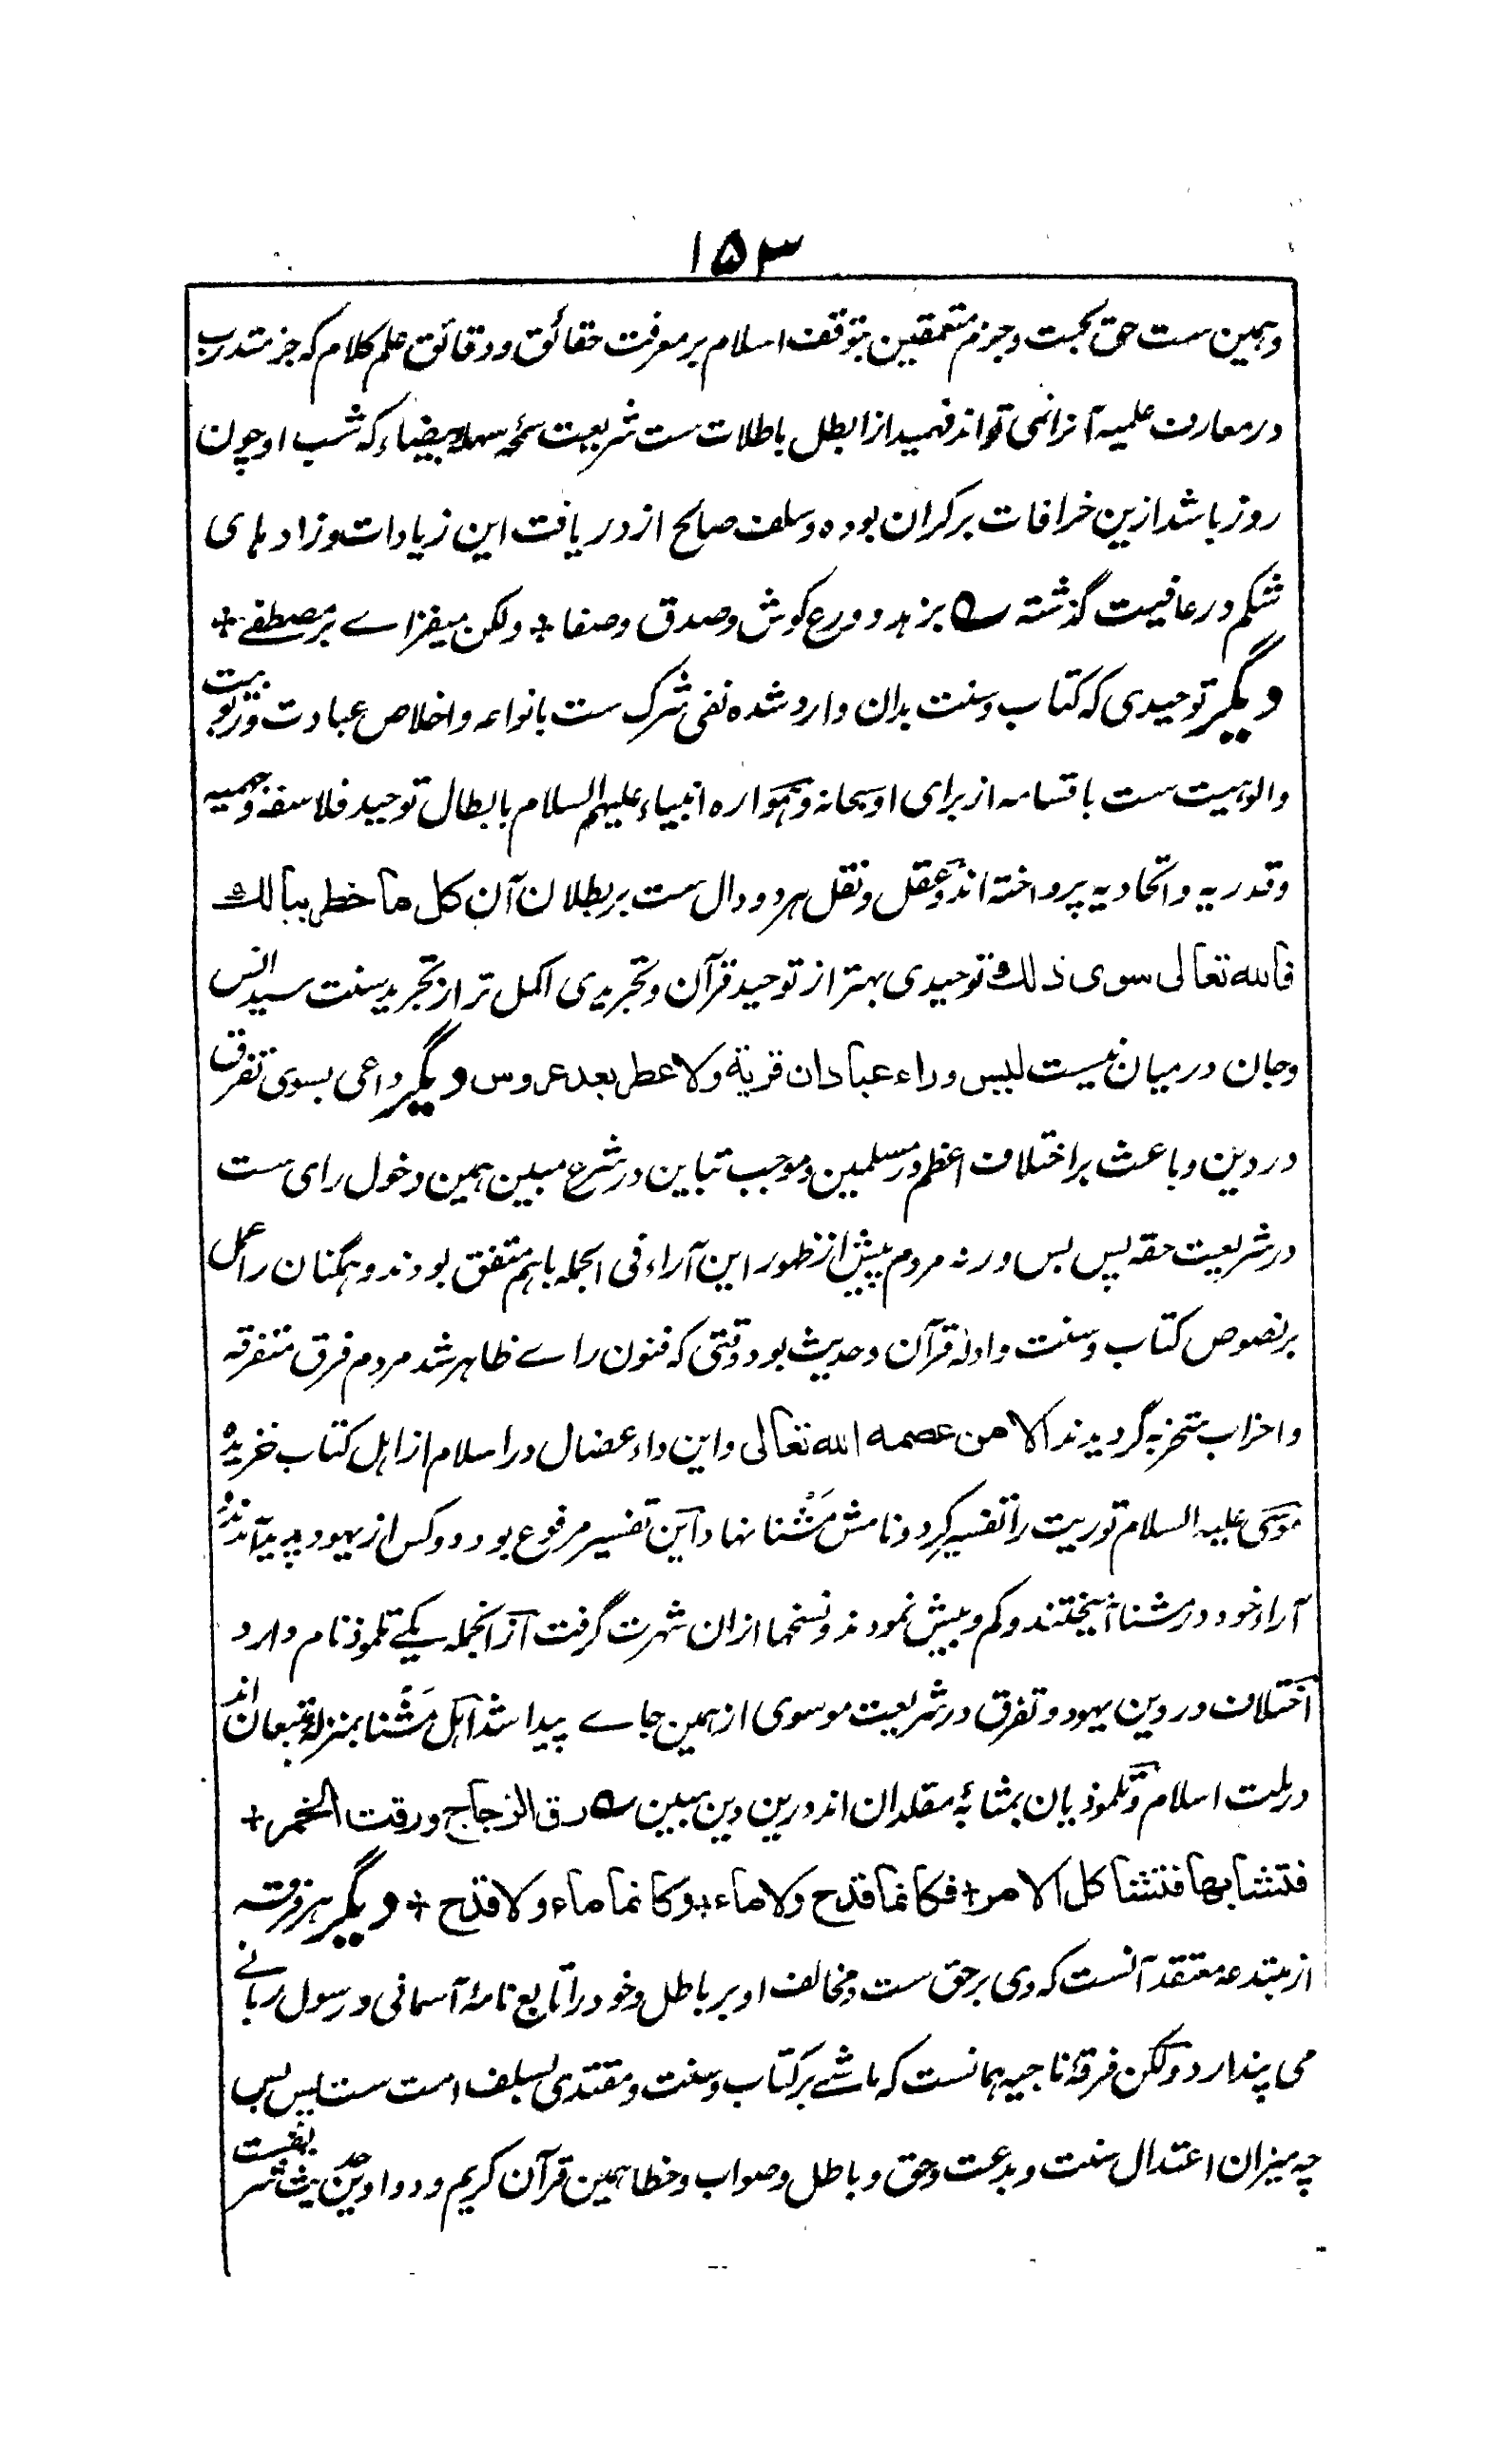 ۱۵۳
وہمین ست حق بحبت وجزم متعمقین بتوقف اسلام برمعرفت حقائق ودقائق علم کلام کہ جز متدرب
درمعارف علمیہ آنرا نمی تواند فہمید از ابطل باطلات ست شریعت سمحہ سہلہ بیضاء کہ شب او چون
روز باشد ازین خرافات برکران بودہ وسلف صالح از دریافت این زیادات وزادہای
شکم درعافیت گذشتہ ؎ بزہد وورع کوش وصدق وصفا + ولکن میفزاے برمصطفے +
دیگر توحیدی کہ کتاب وسنت بدان وارد شدہ نفی شرک ست بانواعہ واخلاص عبادت وربوبیت
والوہیت ست باقسامہ از برای اوسبحانہ وہموارہ انبیاء علیہم السلام بابطال توحید فلاسفہ وجہمیہ
وقدریہ واتحادیہ پرداختہ اند وعقل ونقل ہردو دال ست بربطلان آن کل ما خطر ببالك
فالله تعالی سوی ذلك وتوحیدی بہتر از توحید قرآن وتجریدی اکمل تر از تجرید سنت سید انس
وجان درمیان نیست لیس وراء عبادان قریة ولا عطر بعد عروس دیگر داعی بسوی تفرق
در دین وباعث براختلاف اعظم درمسلمین وموجب تباین درشرع مبین ہمین دخول رای ست
درشریعت حقہ پس بس ورنہ مردم پیش از ظہور این آراء فی الجملہ باہم متفق بودند وہمگنان را عمل
برنصوص کتاب وسنت وادلۂ قرآن وحدیث بود وقتی کہ فنون راے ظاہر شد مردم فرق متفرقہ
واحزاب متحزبہ گردیدند الا من عصمہ الله تعالی واین داء عضال دراسلام از اہل کتاب خزیدہ
موسی علیہ السلام توریت را تفسیر کرد ونامش مَشُنا نہاد این تفسیر مرفوع بود دوکس از یہود پدید آمدند
آراء خود درمشنا آمیختند وکم وبیش نمودند ونسخہا ازان شہرت گرفت ازانجملہ یکے تلموذ نام دارد
اختلاف در دین یہود وتفرق درشریعت موسوی از ہمین جاے پیدا شد اہل مَشُنا بمنزلۂ متبعان اند
درملت اسلام وتلموذیان بمثابۂ مقلدان اند درین دین مبین ؎ رق الزجاج ورقت الخمر +
فتشابها فتشاکل الامر + فکانما قدح ولا ماء + وکانما ماء ولا قدح + دیگر ہرفرقہ
از مبتدعہ معتقد آنست کہ وی برحق ست ومخالف او برباطل وخود را تابع نامۂ آسمانی ورسول ربانے
می پندارد ولکن فرقۂ ناجیہ ہمانست کہ ماشے برکتاب وسنت ومقتدی بسلف امت ست پس بس
چہ میزان اعتدال سنت وبدعت وحق وباطل وصواب وخطا ہمین قرآن کریم ودواوین حدیث شریفست